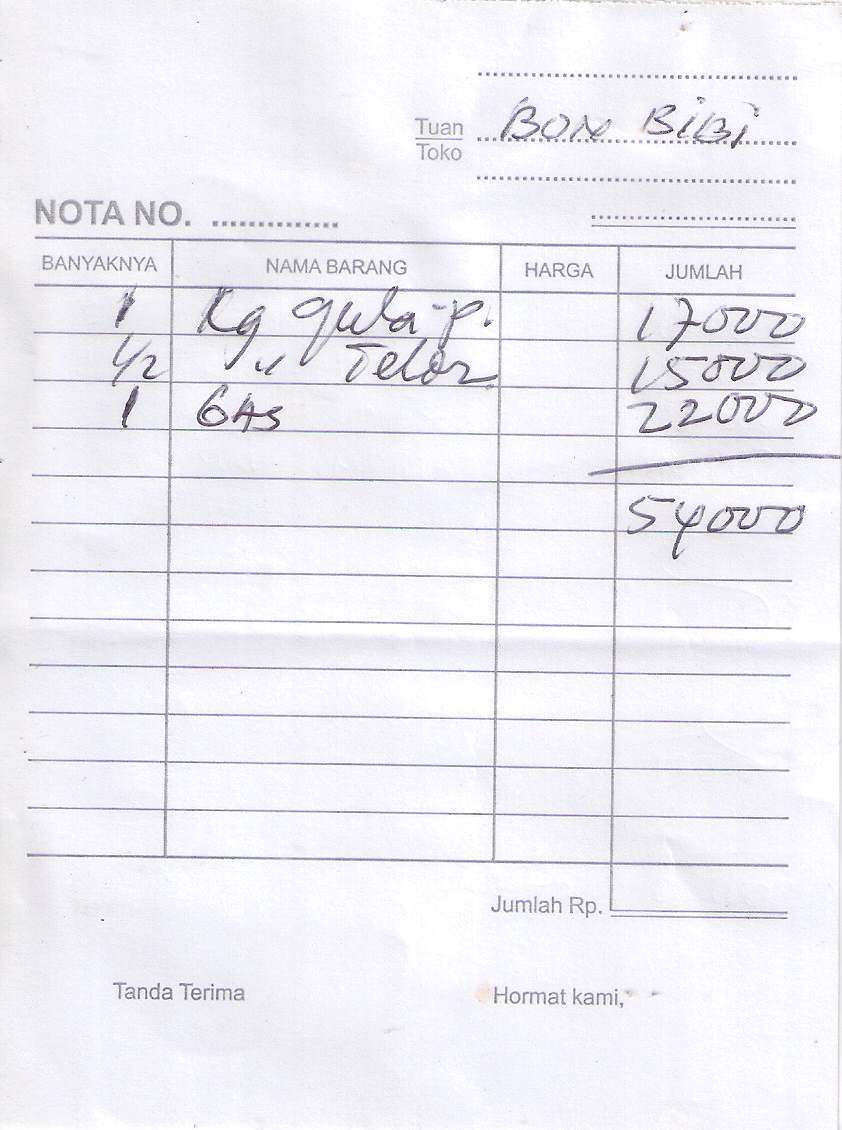 BON BiBi
Tuan
Toko
NOTA NO. ..............
BANYAKNYA NAMA BARANG HARGA JUMLAH
1 Kg gula-p. 17000
1/2 〃 Telor 15000
1 GAS 22000
54000
Jumlah Rp.
Tanda Terima Hormat kami,